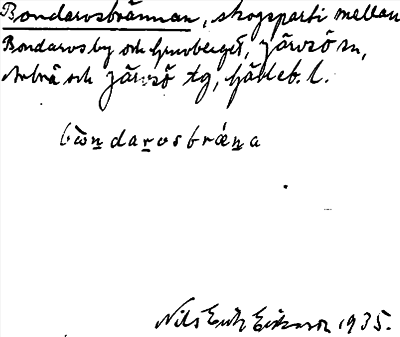 Bondarosbrännan, skogsparti mellan
Bondaros by och Gruvberget, Järvsö sn,
Arbrå och Järvsö tg, Gävleb. l.
bòndarosbrǽna
Nils Erik Eriksson 1935.